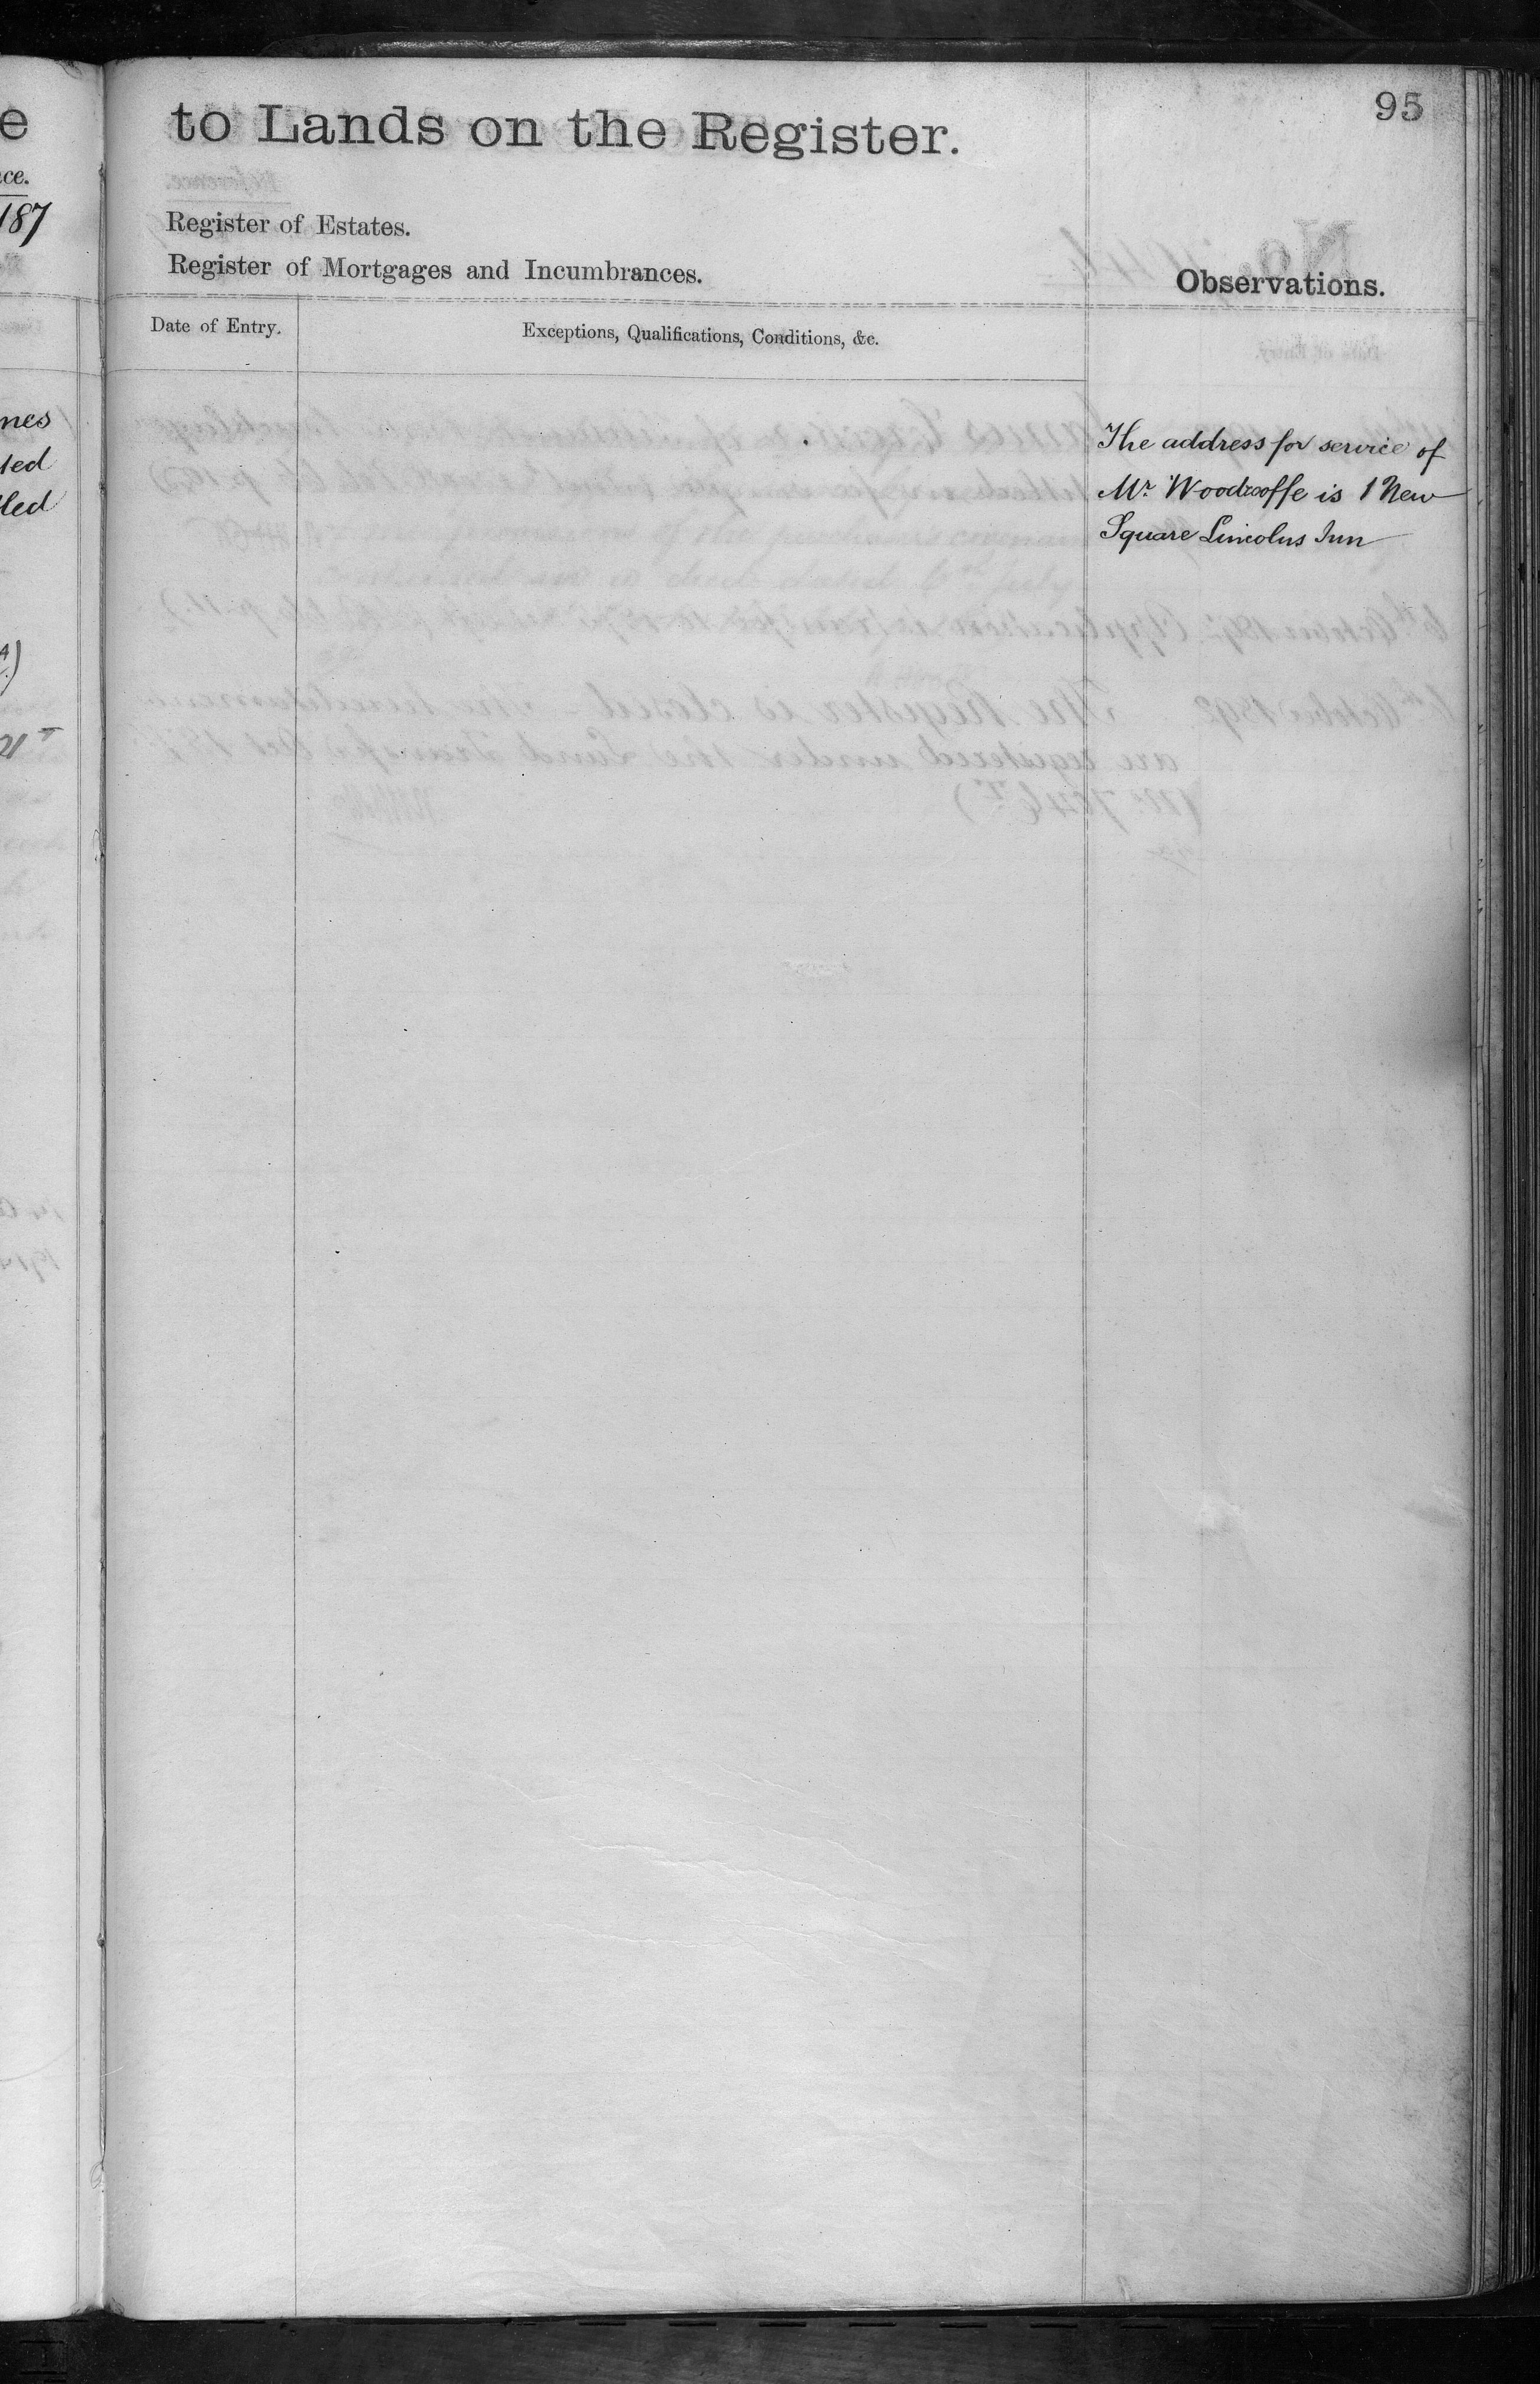 95
to Lands on the Register.
Register of Estates.
Register of Mortgages and Incumbrances.
Observations.
Date of Entry.
Exceptions, Qualifications, Conditions, &c.
The address for service of
Mr. Woodrooffe is 1 New
Square Lincolns Inn
e
ce.
187
nes
ted
lled